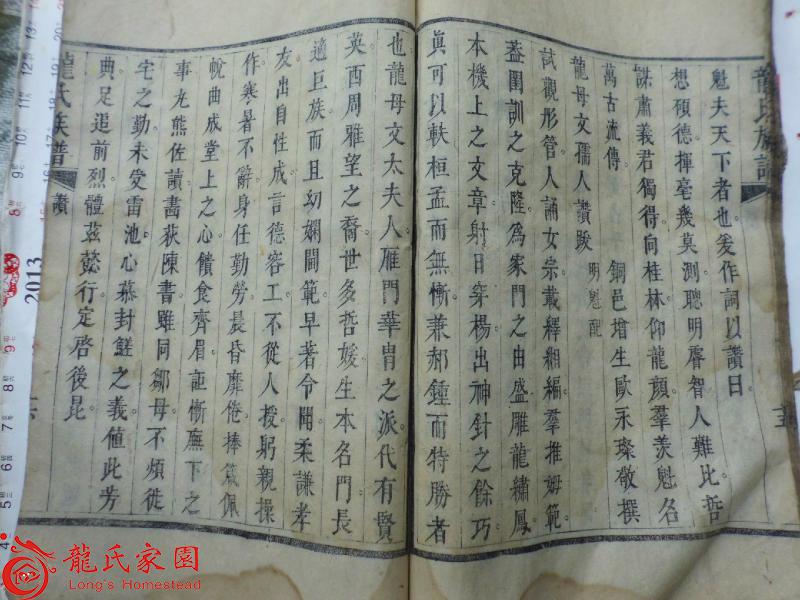 魁夫天下者也爰作詞以讚曰
想碩德揮毫幾莫測聰明睿智人難比哲
謀肅義君獨得向桂林仰龍顏羣羨魁名
萬古流傳
銅邑增生歐永璨敬撰
龍母文孺人讚跋
明魁配
試觀形管人誦女宗載繹緗編羣推姆範
盍闺訓之克隆為家門之由盛雕龍繡鳳
本機上之文章射日穿楊出神針之餘巧
真可以軼桓孟而無慚兼郝鍾而特勝者
也龍母文太夫人雁門華胄之派代有賢
英西周雅望之裔世多哲媛生本名門長
適巨族而且幼嫻閫範早著令聞柔謙孝
友出自性成言德容工不從人授躬親操
作寒暑不辭身任勤勞晨昏靡倦捧箴佩
帨曲成堂上之心饋食齊眉詎慚廡下之
事丸熊佐讀畫荻陳書雖同鄒母不煩徙
宅之勤未受雷池心慕封鮓之義值此芳
典足追前烈體茲懿行定啓後昆
龍氏族譜
讚
龍氏族譜
2013
龍氏家園
Long's Homestead